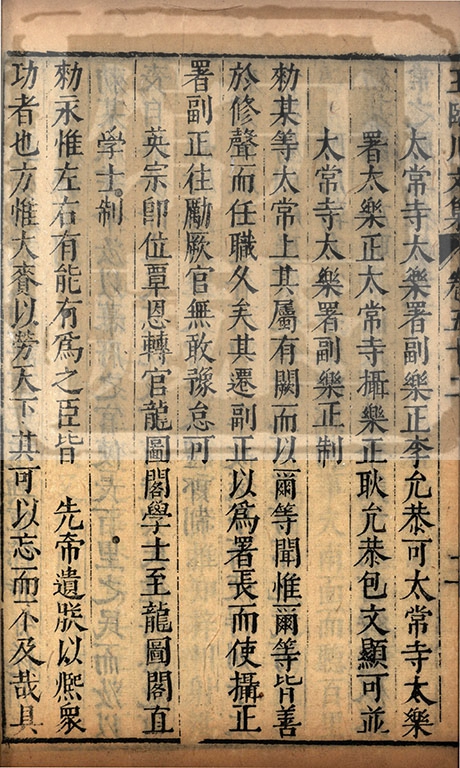 太常寺太樂署副樂正李允恭可太常寺太樂
署太樂正太常寺攝樂正耿允恭包文顯可並
太常寺太樂署副樂正制
勑某等太常上其屬有闕而以爾等聞惟爾等皆善
於修聲而任職久矣其遷副正以爲署長而使攝正
署副正往勵厥官無敢豫怠可
英宗卽位覃恩轉官龍圖閣學士至龍圖閣直
學士制
勑朕惟左右有能有爲之臣皆 先帝遺朕以熈衆
功者也方惟大賚以勞天下其可以忘而不及哉具